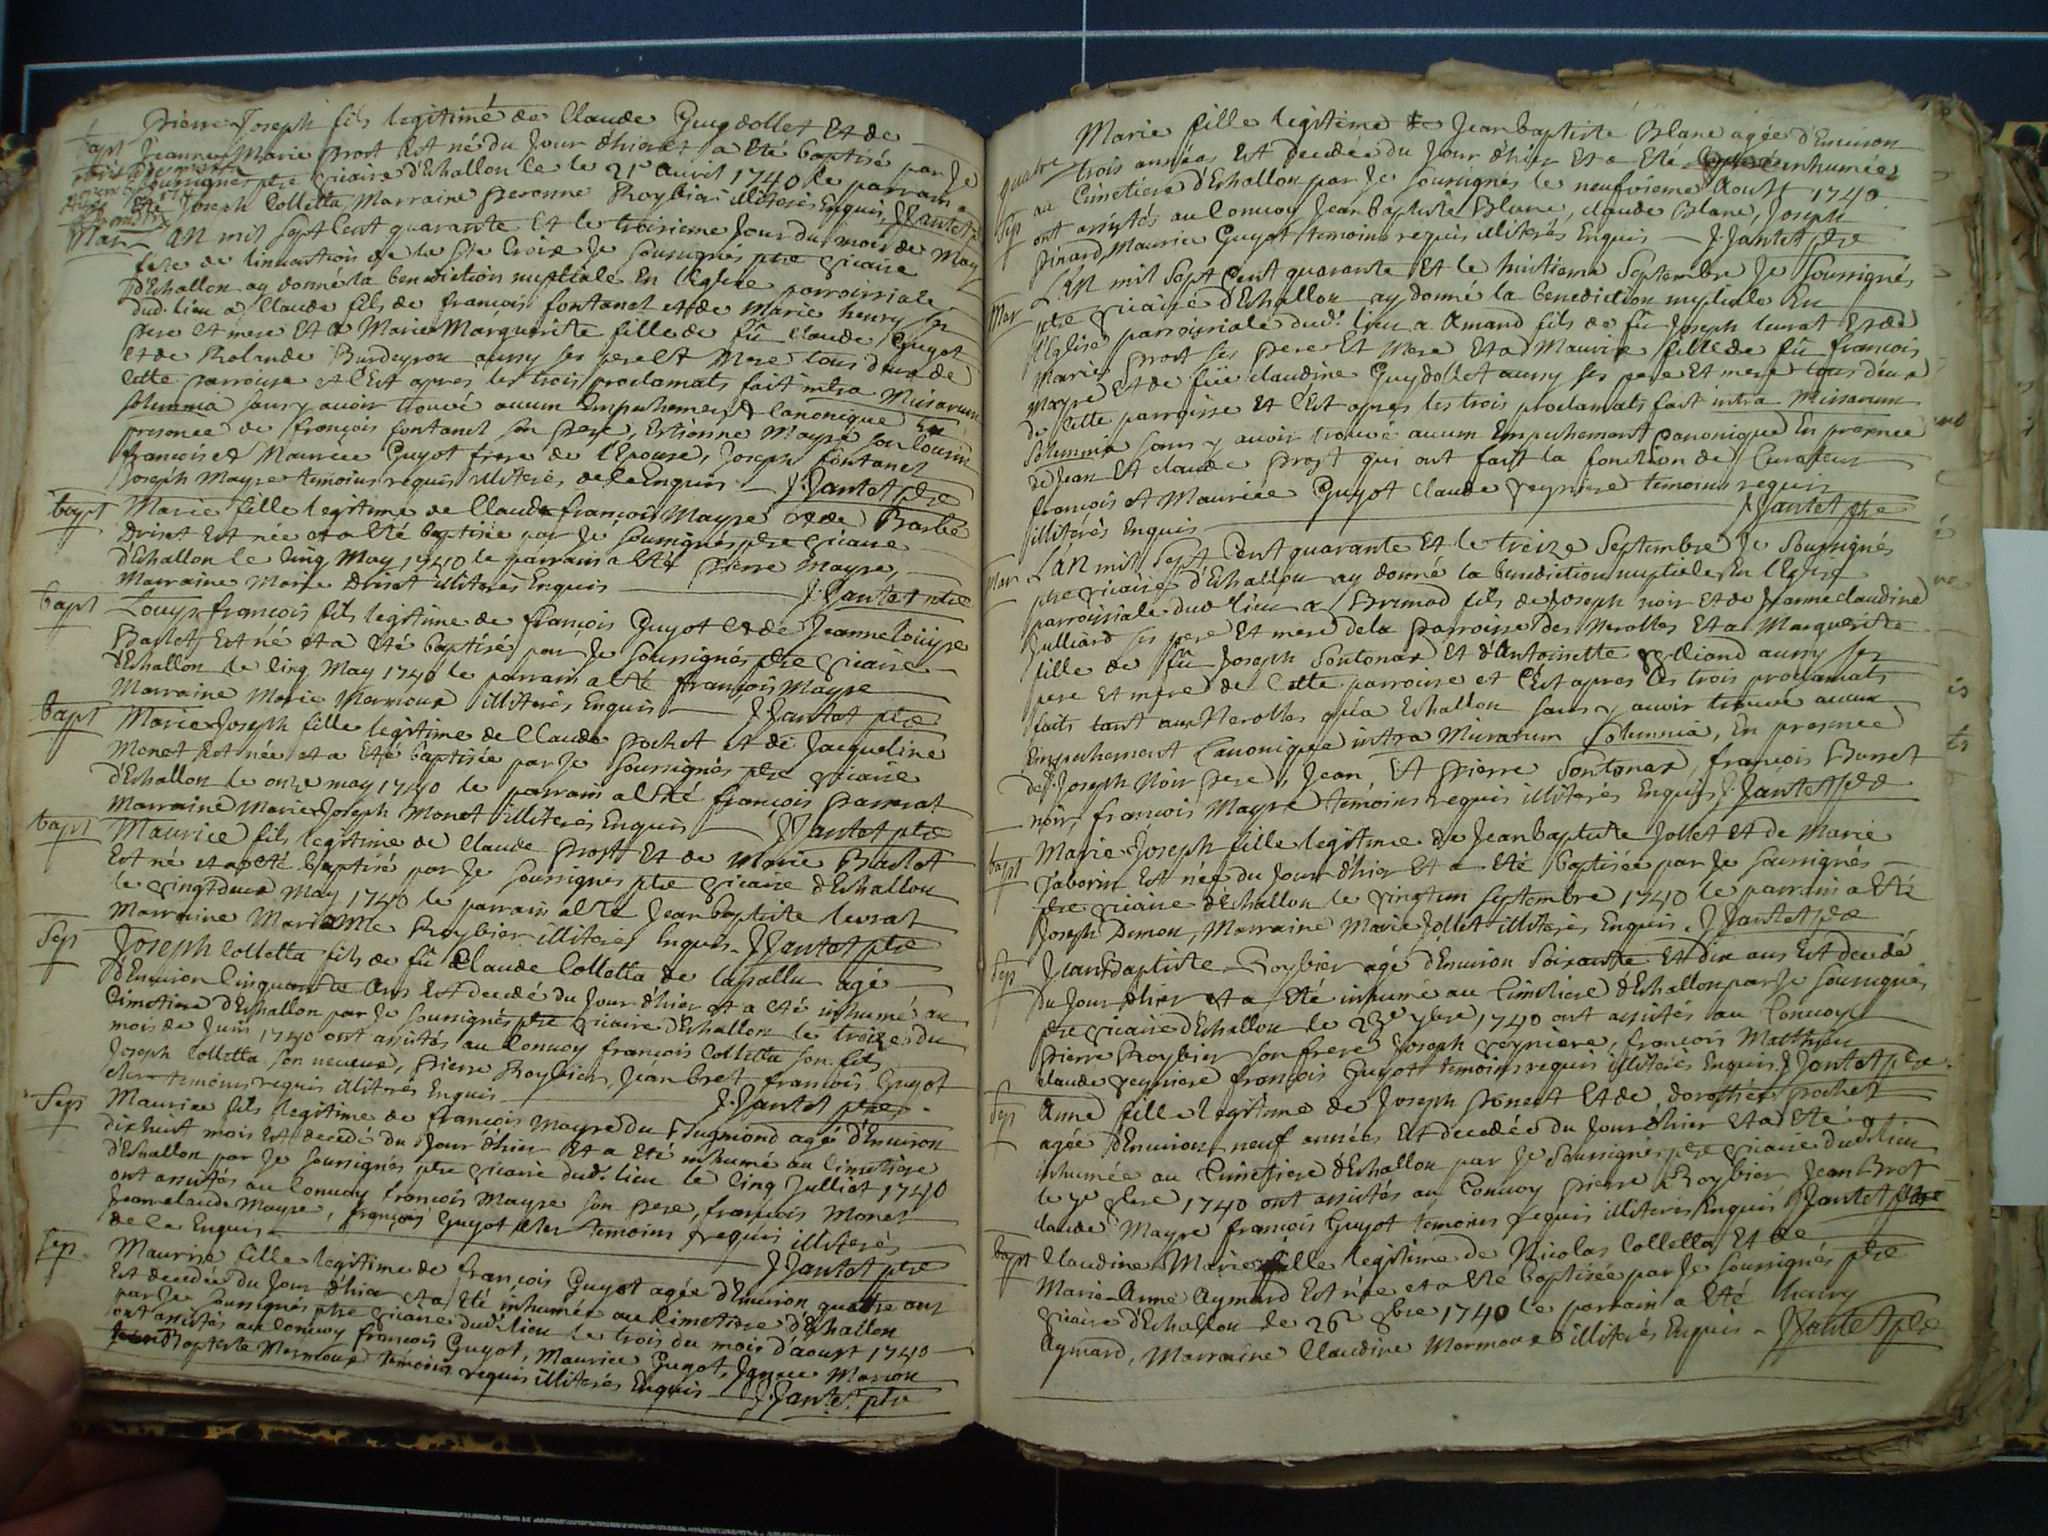 Pierre Joseph fils legitime de Claude Guydollet Et de
bapt Jeanne Marie Prost Est né du Jour d'hier et a Eté baptisé par Je
soussignés ptre vicaire d'Echallon le 21e avril 1740 le parrain a
Eté Joseph Colletta, Marraine Peronne Roybier illiterés Enquis J Jantet ptre
Mar L'AN mil Sept Cent quarante Et le troisieme Jour du mois de May
feste de linvantion de la Ste Croix Je soussignés ptre vicaire
d'Echallon ay donné la benediction nuptiale En l'Eglise parroissiale
dud. lieu a Claude fils de françois fontanel et de Marie henry ses
pere Et mere Et a Marie Marguerite fille de fû Claude Guyot
Et de Rolande Burdeyron aussy ses pere Et Mere tous deux de
Cette parroisse et C'Est apres les trois proclamats fait intra Missarum
solemnia sans y avoir trouvé aucun Empechement Canonique En
presence de françois fontanel son pere, Estienne Mayre son Cousin
françois et Maurice Guyot frere de l'Epouse, Joseph fontanel
Joseph Mayre temoins requis illiterés de le Enquis J. Jantet ptre
bapt Marie fille legitime de Claude françois Mayre et de Barbe
Drinet Est née et a Eté baptisée par Je soussignés ptre vicaire
d'Echallon le Cinq May 1740 le parrain a Eté Pierre Mayre,
Marraine Marie Drinet illiterés Enquis J. Jantet ptre
bapt Louys françois fils legitime de françois Guyot et de Jeanne Loüyse
Barlet Est né et a Eté baptisé par Je soussignés ptre vicaire
d'Echallon le Cinq May 1740 le parrain a Eté françois Mayre
Marraine Marie Mermoux illiterés Enquis J. Jantet ptre
bapt Marie Joseph fille legitime de Claude Pochet et de Jacqueline
Monet Est née et a Eté baptisée par Je soussignés ptre vicaire
d'Echallon le onze may 1740 le parrain a Eté françois Passerat
Marraine Marie Joseph Monet illiterés Enquis J. Jantet ptre
bapt Maurice fils legitime de Claude Prost Et de Marie Barlet
Est né et a Eté baptisé par Je soussignés ptre vicaire d'Echallon
le vingt deux May 1740 le parrain a Eté Jean baptiste levrat
Marraine Marianne Roybier illiterés Enquis. J Jantet ptre
Sep Joseph Colletta fils de fû Claude Colletta de lapallu agé
d'Environ Cinquante Ans Est decedé du Jour d'hier et a Eté inhumé au
Cimetiere d'Echallon par Je soussignés ptre vicaire d'Echallon le treize du
mois de Juin 1740 ont assistés au Convoy françois Colletta son fils
Joseph Colletta son neveux, Pierre Roybier, Jean bret françois Guyot
cler temoins requis illiterés Enquis J. Jantet ptre
Sep Maurice fils legitime de françois Mayre du agé d'Environ
dixhuit mois Est decedé du Jour d'hier Et a Eté inhumé au Cimetiere
d'Echallon par Je soussignés ptre vicaire dud. lieu le Cinq Julliet 1740
ont assistés au Convoy françois Mayre son pere, françois Monet
Jean claude Mayre, françois Guyot cler temoins requis illiterés
de le Enquis J Jantet ptre
Sep Maurise fille legitime de françois Guyot agée d'Environ quattre ans
Est decedée du Jour d'hier et a Eté inhumée au Cimetiere d'Echallon
par Je soussignés ptre vicaire dud. lieu le trois du mois d'aoust 1740
ont assistés au Convoy françois Guyot, Maurice Guyot, Marion
Baptiste Mermoux temoins requis illiterés Enquis J. Jantet ptre
Marie fille legitime de Jean baptiste Blanc agée d'Environ
quatre trois années Est decedée du Jour d'hier Et a Eté inhumée
Sep au Cimetiere d'Echallon par Je soussignés le neufvieme Aoust 1740
ont assistés au Convoy Jean baptiste Blanc, claude Blanc, Joseph
Pinard, Maurice Guyot temoins requis illiterés Enquis J. Jantet ptre
Mar L'AN mil Sept Cent quarante Et le huitieme Septembre Je soussignés
ptre vicaire d'Echallon ay donné la benediction nuptiale En
l'Eglise parroissiale dud. lieu a Amand fils de fû Joseph levrat Et de
Marie Prost ses pere Et Mere Et a Maurise fille de fû françois
Mayre Et de füe claudine Guydollet aussy ses pere Et mere tous deux
de Cette parroisse Et C'Est apres les trois proclamats fait intra Missarum
solemnia sans y avoir trouvé aucun Empechement Canonique En presence
de Jean Et claude Prost qui ont fait la fonction de Curateur
françois et Maurice Guyot Claude Veyniere temoins requis
illiterés Enquis J Jantet ptre
Mar L'AN mil Sept Cent quarante Et le treize Septembre Je soussignés
ptre vicaire d'Echallon ay donné la benediction nuptiale En l'Eglise
parroissiale dud. lieu a Brunod fils de Joseph noir Et de Jeanne claudine
Julliard ses pere Et mere de la parroisse des Nerolles Et a Marguerite
fille de fû Joseph Sontonax Et d'Antoinette aussy ses
pere Et mere de Cette parroisse et C'Est apres les trois proclamats
faits tant aux Nerolles qu'a Echallon sans y avoir trouvé aucun
Empechement Canonique intra Missarum solemnia, En presence
de Joseph Noir pere, Jean, Et Pierre Sontonax, françois
noir, françois Mayre temoins requis illiterés Enquis J. Jantet ptre
bapt Marie Joseph fille legitime de Jean baptiste Jollet et de Marie
Taborin Est née du Jour d'hier Et a Eté baptisée par Je soussignés
ptre vicaire d'Echallon le vingt un Septembre 1740 le parrain a Eté
Joseph Demon, Marraine Marie Jollet illiterés Enquis. J Jantet ptre
Sep Jean Baptiste Roybier agé d'Environ Soixante Et dix ans Est decedé
du Jour d'hier et a Eté inhumé au Cimetiere d'Echallon par Je soussignés
ptre vicaire d'Echallon le 23e 1740 ont assistés au Convoy
Pierre Roybier son frere Joseph Veyniere, françois Matthieu
claude Veyniere françois Guyot temoins requis illiterés Enquis J Jantet ptre.
Sep Anne fille legitime de Joseph Poncet Et de dorothée Pochet
agée d'Environ neuf années Est decedée du Jour d'hier Et a Eté
inhumée au Cimetiere d'Echallon par Je soussignés ptre vicaire dud. lieu
le 1740 ont assistés au Convoy Pierre Roybier Jean Bret
claude Mayre françois Guyot temoins requis illiterés Enquis J Jantet ptre
bapt Claudine Marie fille legitime de Nicolas Colletta Et de
Marie Anne Aymard Est née et a Eté baptisée par Je soussignés ptre
vicaire d'Echallon le 26e 1740 le parrain a Eté
Aymard, Marraine Claudine Mermoux illiterés Enquis. J Jantet ptre